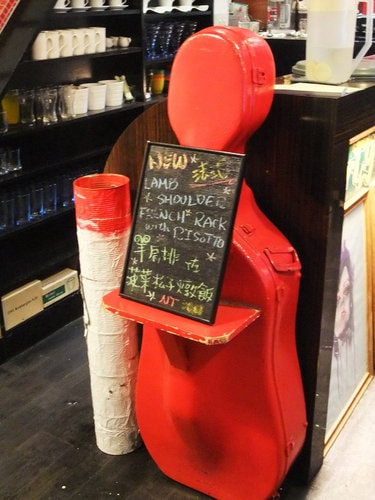 NEW 法式
LAMB
SHOULDER
FRENCH RACK
with RISOTTO
羊肩排
菠菜松子燉飯
NT